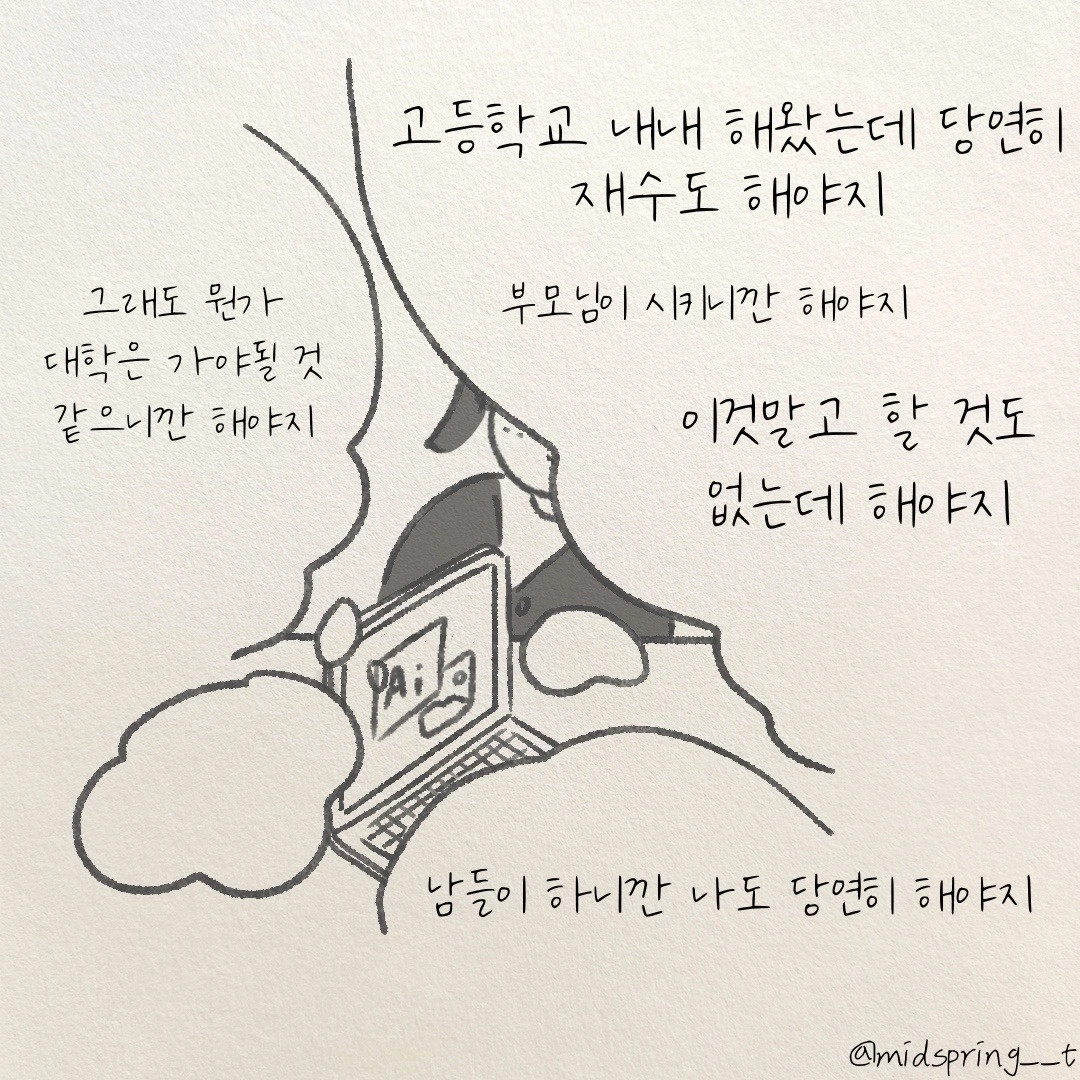 고등학교 내내 해왔는데 당연히
재수도 해야지
그래도 뭔가
대학은 가야될 것
같으니깐 해야지
부모님이 시키니깐 해야지
이것말고 할 것도
없는데 해야지
Ai
남들이 하니깐 나도 당연히 해야지
@midspring__t